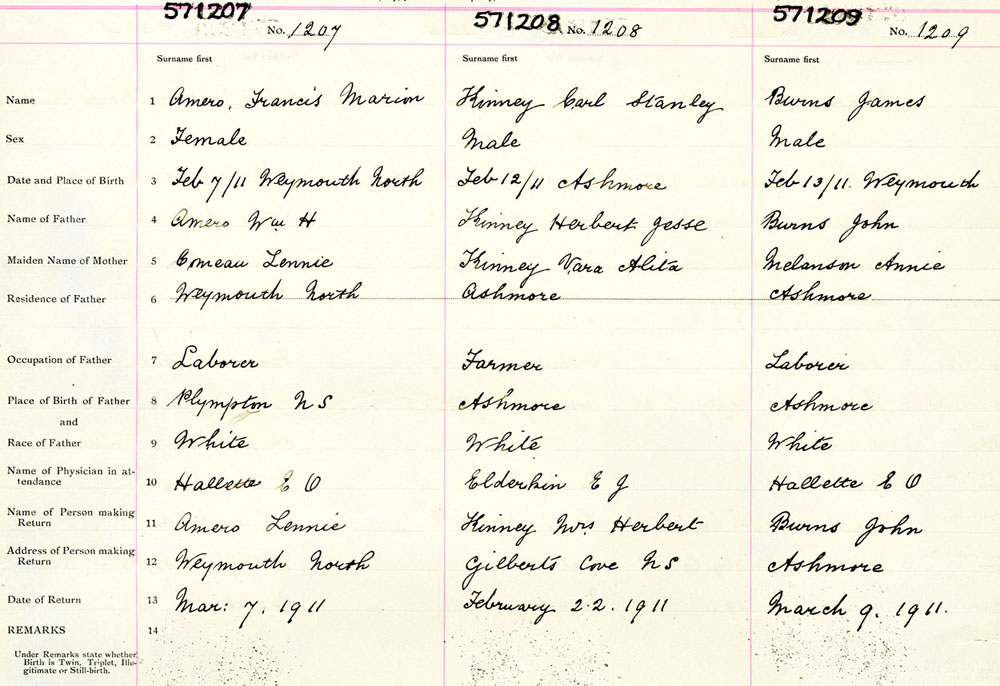 571207
571208
571209
No. 1207
No. 1208
No. 1209
Surname first
Surname first
Surname first
Name 1 Amero, Francis Marion Kinney Carl Stanley Burns James
Sex 2 Female Male Male
Date and Place of Birth 3 Feb 7/11 Weymouth North Feb 12/11 Ashmore Feb 13/11. Weymouth
Name of Father 4 Amero Wm H Kinney Herbert Jesse Burns John
Maiden Name of Mother 5 Comeau Lennie Kinney Vara Alita Melanson Annie
Residence of Father 6 Weymouth North Ashmore Ashmore
Occupation of Father 7 Laborer Farmer Laborer
Place of Birth of Father 8 Plympton N S Ashmore Ashmore
and
Race of Father 9 White White White
Name of Physician in at-
tendance 10 Hallette E O Elderkin E J Hallette E O
Name of Person making
Return 11 Amero Lennie Kinney Mrs Herbert Burns John
Address of Person making
Return 12 Weymouth North Gilberts Cove N S Ashmore
Date of Return 13 Mar: 7. 1911 February 22. 1911 March 9. 1911.
REMARKS 14
Under Remarks state whether
Birth is Twin, Triplet, Ille-
gitimate or Still-birth.